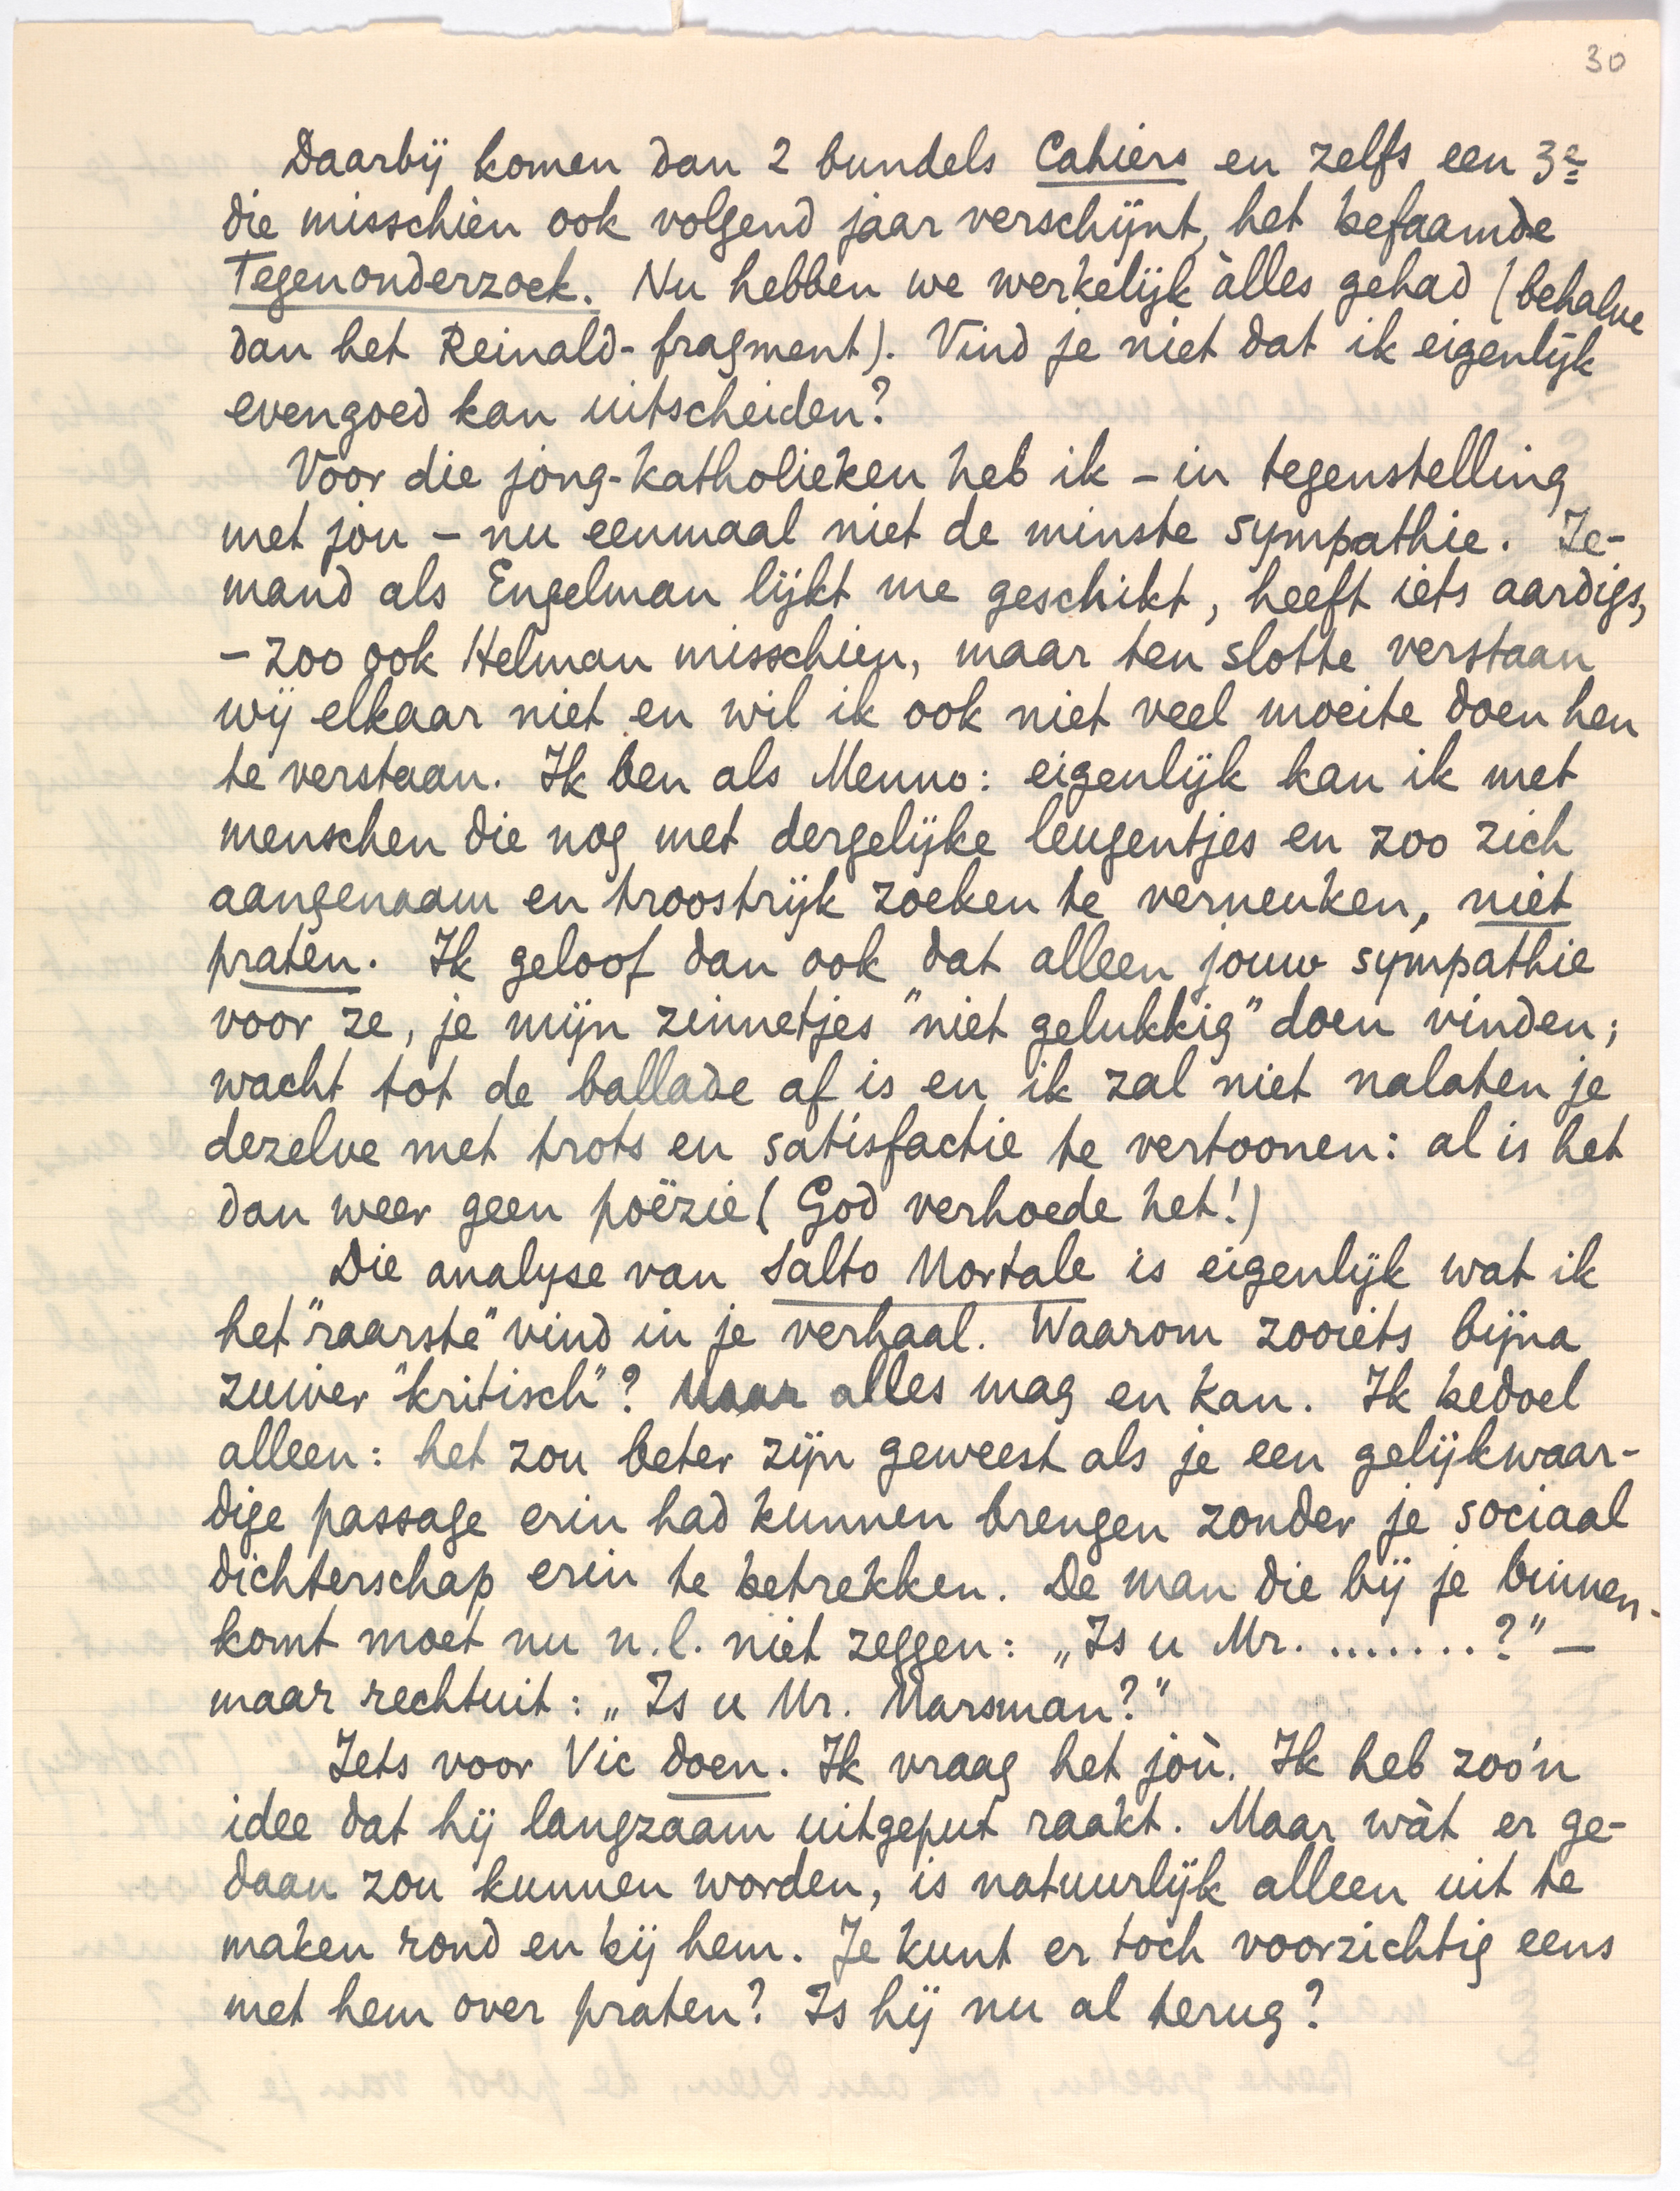 30
Daarbij komen dan 2 bundels Cahiers en zelfs een 3e
die misschien ook volgend jaar verschijnt, het befaamde
Tegenonderzoek. Nu hebben we werkelijk àlles gehad (behalve
dan het Reinald-fragment). Vind je niet dat ik eigenlijk
evengoed kan uitscheiden?
Voor die jong-katholieken heb ik – in tegenstelling
met jou – nu eenmaal niet de minste sympathie. Ie-
mand als Engelman lijkt me geschikt, heeft iets aardigs,
– zoo ook Helman misschien, maar ten slotte verstaan
wij elkaar niet en wil ik ook niet veel moeite doen hen
te verstaan. Ik ben als Menno: eigenlijk kan ik met
menschen die nog met dergelijke leugentjes en zoo zich
aangenaam en troostrijk zoeken te verneuken, niet
praten. Ik geloof dan ook dat alleen jouw sympathie
voor ze, je mijn zinnetjes "niet gelukkig" doen vinden;
wacht tot de ballade af is en ik zal niet nalaten je
dezelve met trots en satisfactie te vertoonen: al is het
dan weer geen poëzie (God verhoede het!)
Die analyse van Salto Mortale is eigenlijk wat ik
het "raarste" vind in je verhaal. Waarom zooiets bijna
zuiver "kritisch"? Maar alles mag en kan. Ik bedoel
alleen: het zou beter zijn geweest als je een gelijkwaar-
dige passage erin had kunnen brengen zonder je sociaal
dichterschap erin te betrekken. De man die bij je binnen-
komt moet nu n.l. niet zeggen: „Is u Mr. ........?" –
maar rechtuit: „Is u Mr. Marsman?"
Iets voor Vic doen. Ik vraag het jòu. Ik heb zoo'n
idee dat hij langzaam uitgeput raakt. Maar wàt er ge-
daan zou kunnen worden, is natuurlijk alleen uit te
maken rond en bij hem. Je kunt er toch voorzichtig eens
met hem over praten? Is hij nu al terug?